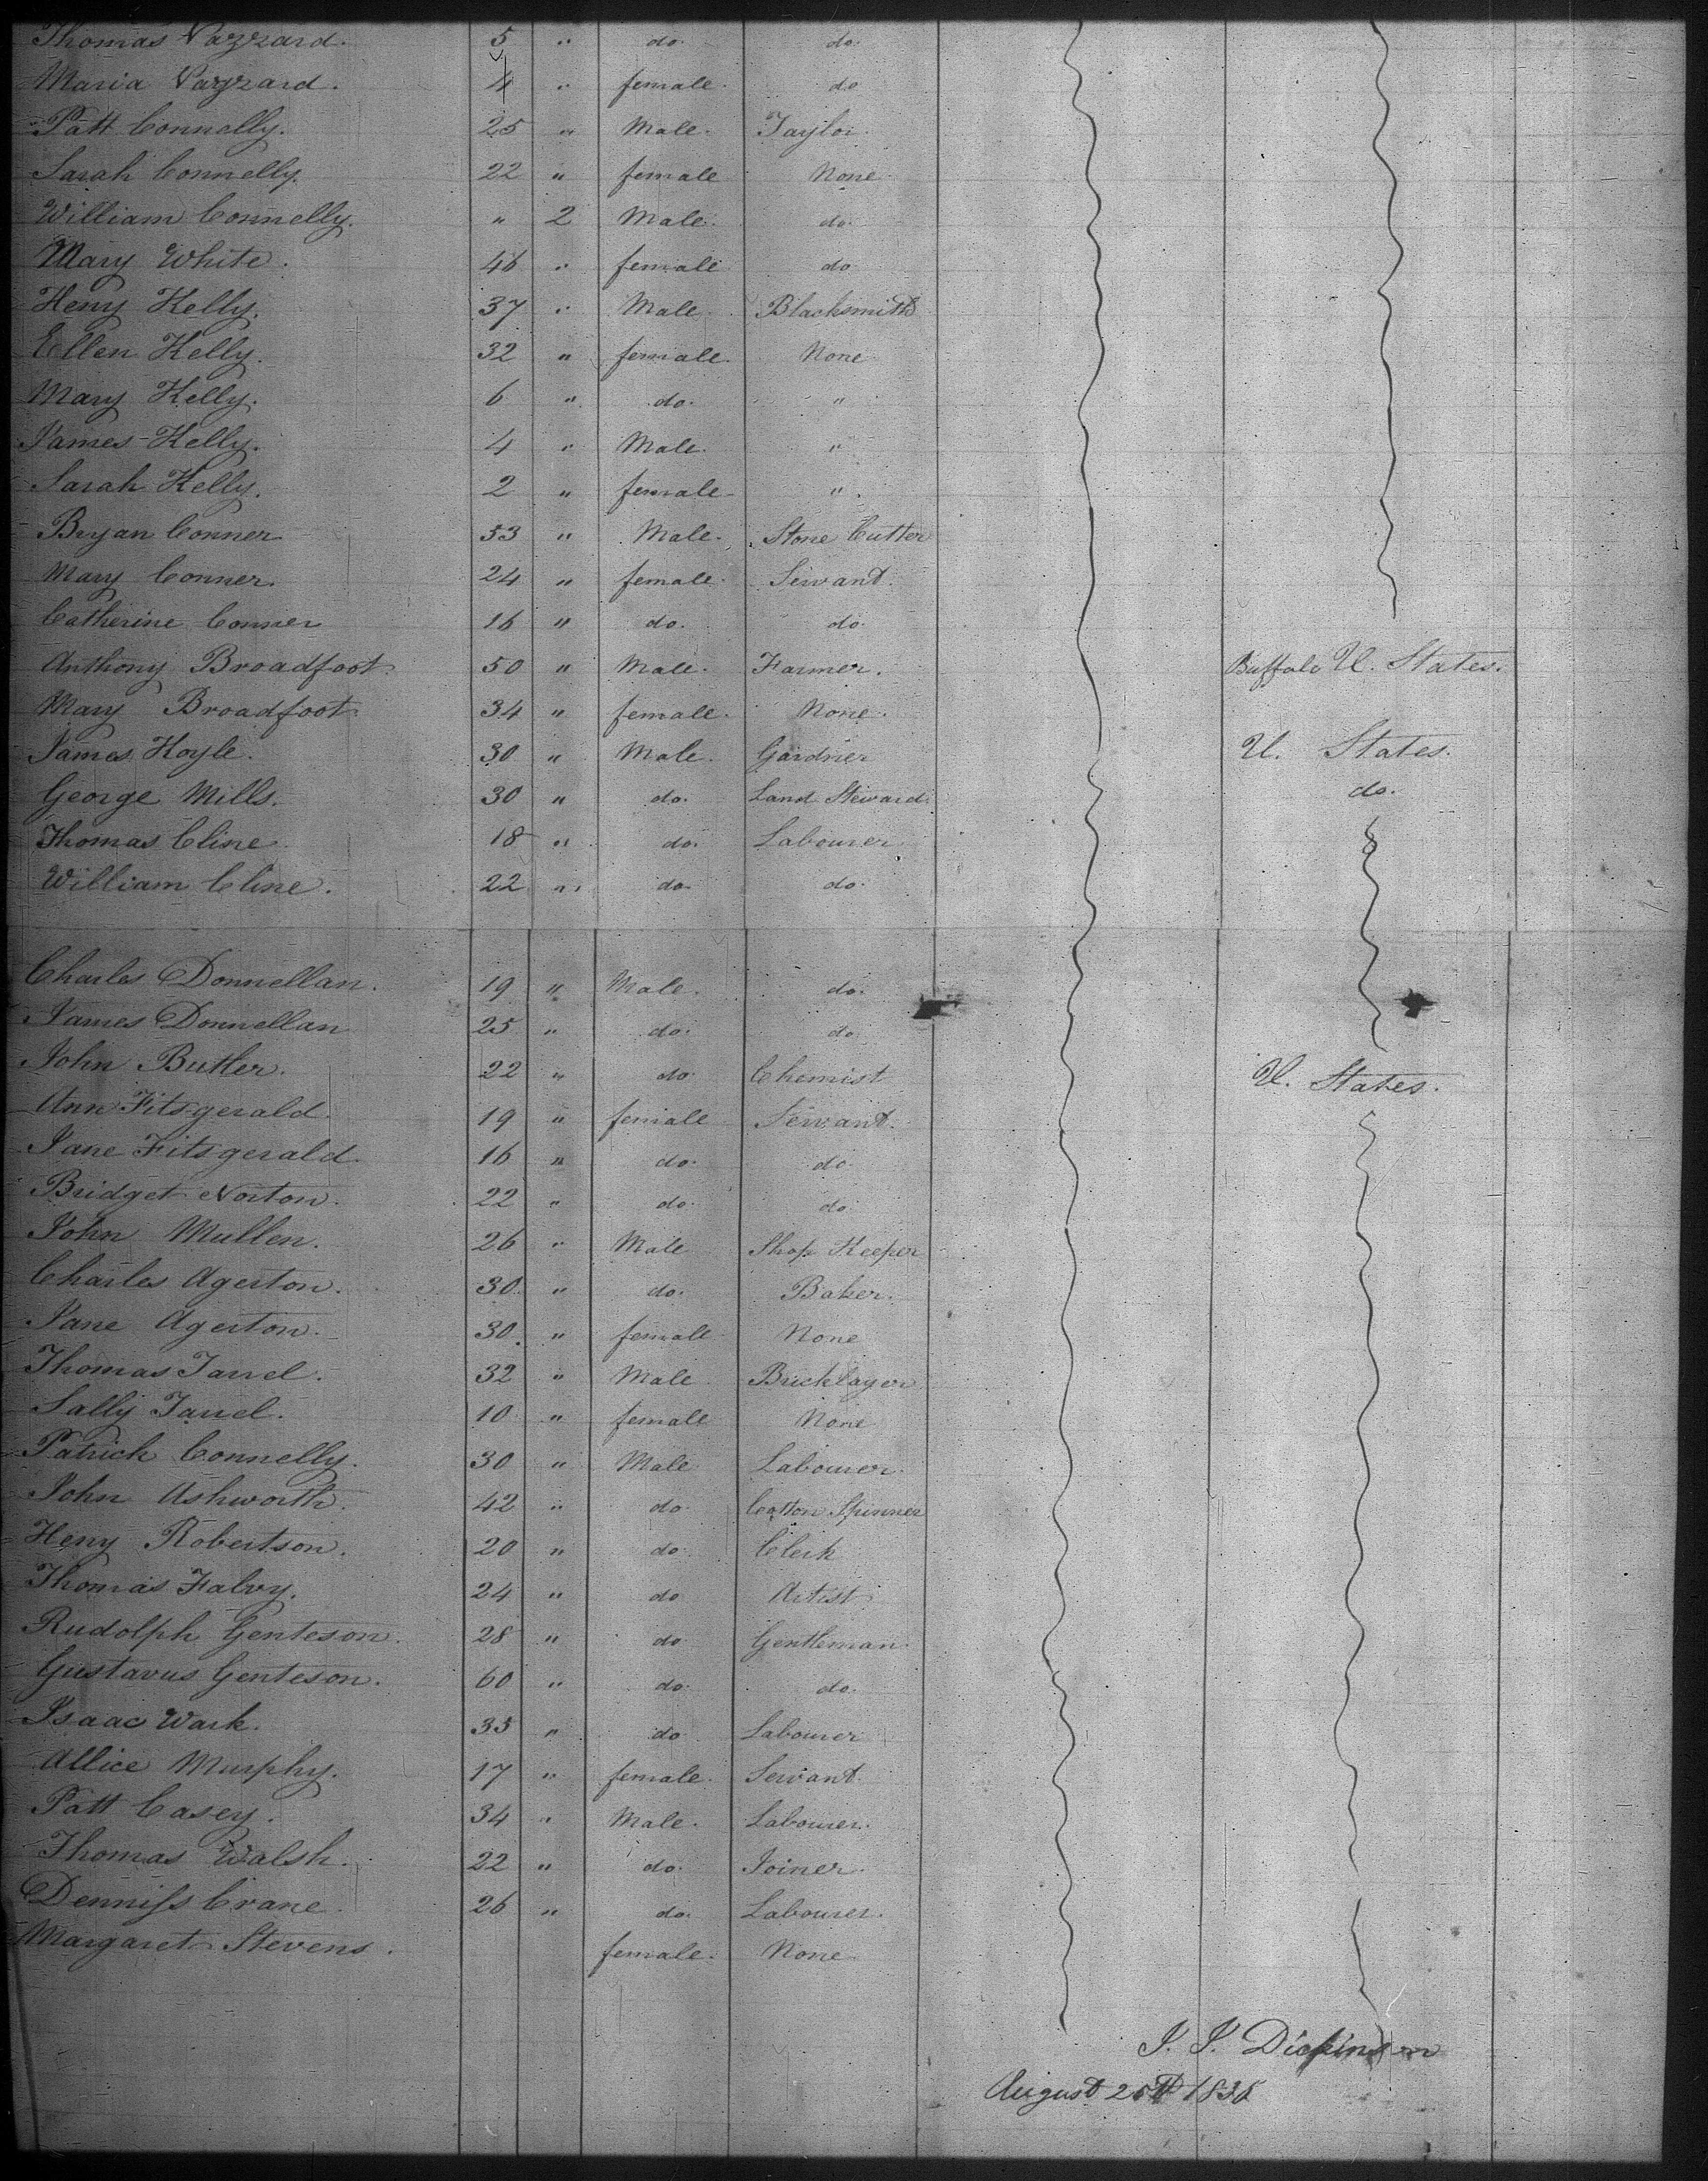 Thomas Vazzard. 5 " do. do.
Maria Vazzard. 4 " female. do
Patt Connelly. 25 " Male. Taylor.
Sarah Connelly. 22 " female None.
William Connelly. " 2 Male. do.
Mary White. 46 " female do
Heny Kelly. 37 " Male. Blacksmith
Ellen Kelly. 32 " female. None
Mary Kelly. 6 " do. "
James Kelly. 4 " Male. "
Sarah Kelly. 2 " female "
Bryan Conner 53 " Male. Stone Cutter
Mary Conner. 24 " female. Servant.
Catherine Conner 16 " do. do.
Anthony Broadfoot. 50 " Male. Farmer. Buffalo U. States.
Mary Broadfoot. 34 " female. None.
James Hoyle. 30 " Male. Gardner U. States.
George Mills. 30 " do. Land Steward. do.
Thomas Cline. 18 " do. Labourer
William Cline. 22 " do. do.
Charles Donnellan. 19 " Male. do.
James Donnellan 25 " do. do.
John Butler. 22 " do. Chemist U. States.
Ann Fitsgerald. 19 " female Servant.
Jane Fitsgerald. 16 " do. do.
Bridget Norton. 22 " do. do.
John Mullen. 26 " Male Shop Keeper
Charles Agerton. 30. " do. Baker.
Jane Agerton. 30. " female None
Thomas Jarrel. 32 " Male Bricklayer
Sally Jarrel. 10 " female None
Patrick Connelly. 30 " Male Labourer.
John Ashworth. 42 " do. Cotton Spinner
Heny Robertson. 20 " do. Clerk
Thomas Falvy. 24 " do Artist
Rudolph Genteson. 28 " do Gentleman.
Gustavus Genteson. 60 " do. do.
Isaac Wark. 35 " do Labourer
Allice Murphy. 17 " female. Servant.
Patt Casey. 34 " Male. Labourer.
Thomas Walsh. 22 " do. Joiner.
Denniss Crane. 26 " do. Labourer.
Margaret Stevens. female. None
J. J. Dickinson
August 25th 1835